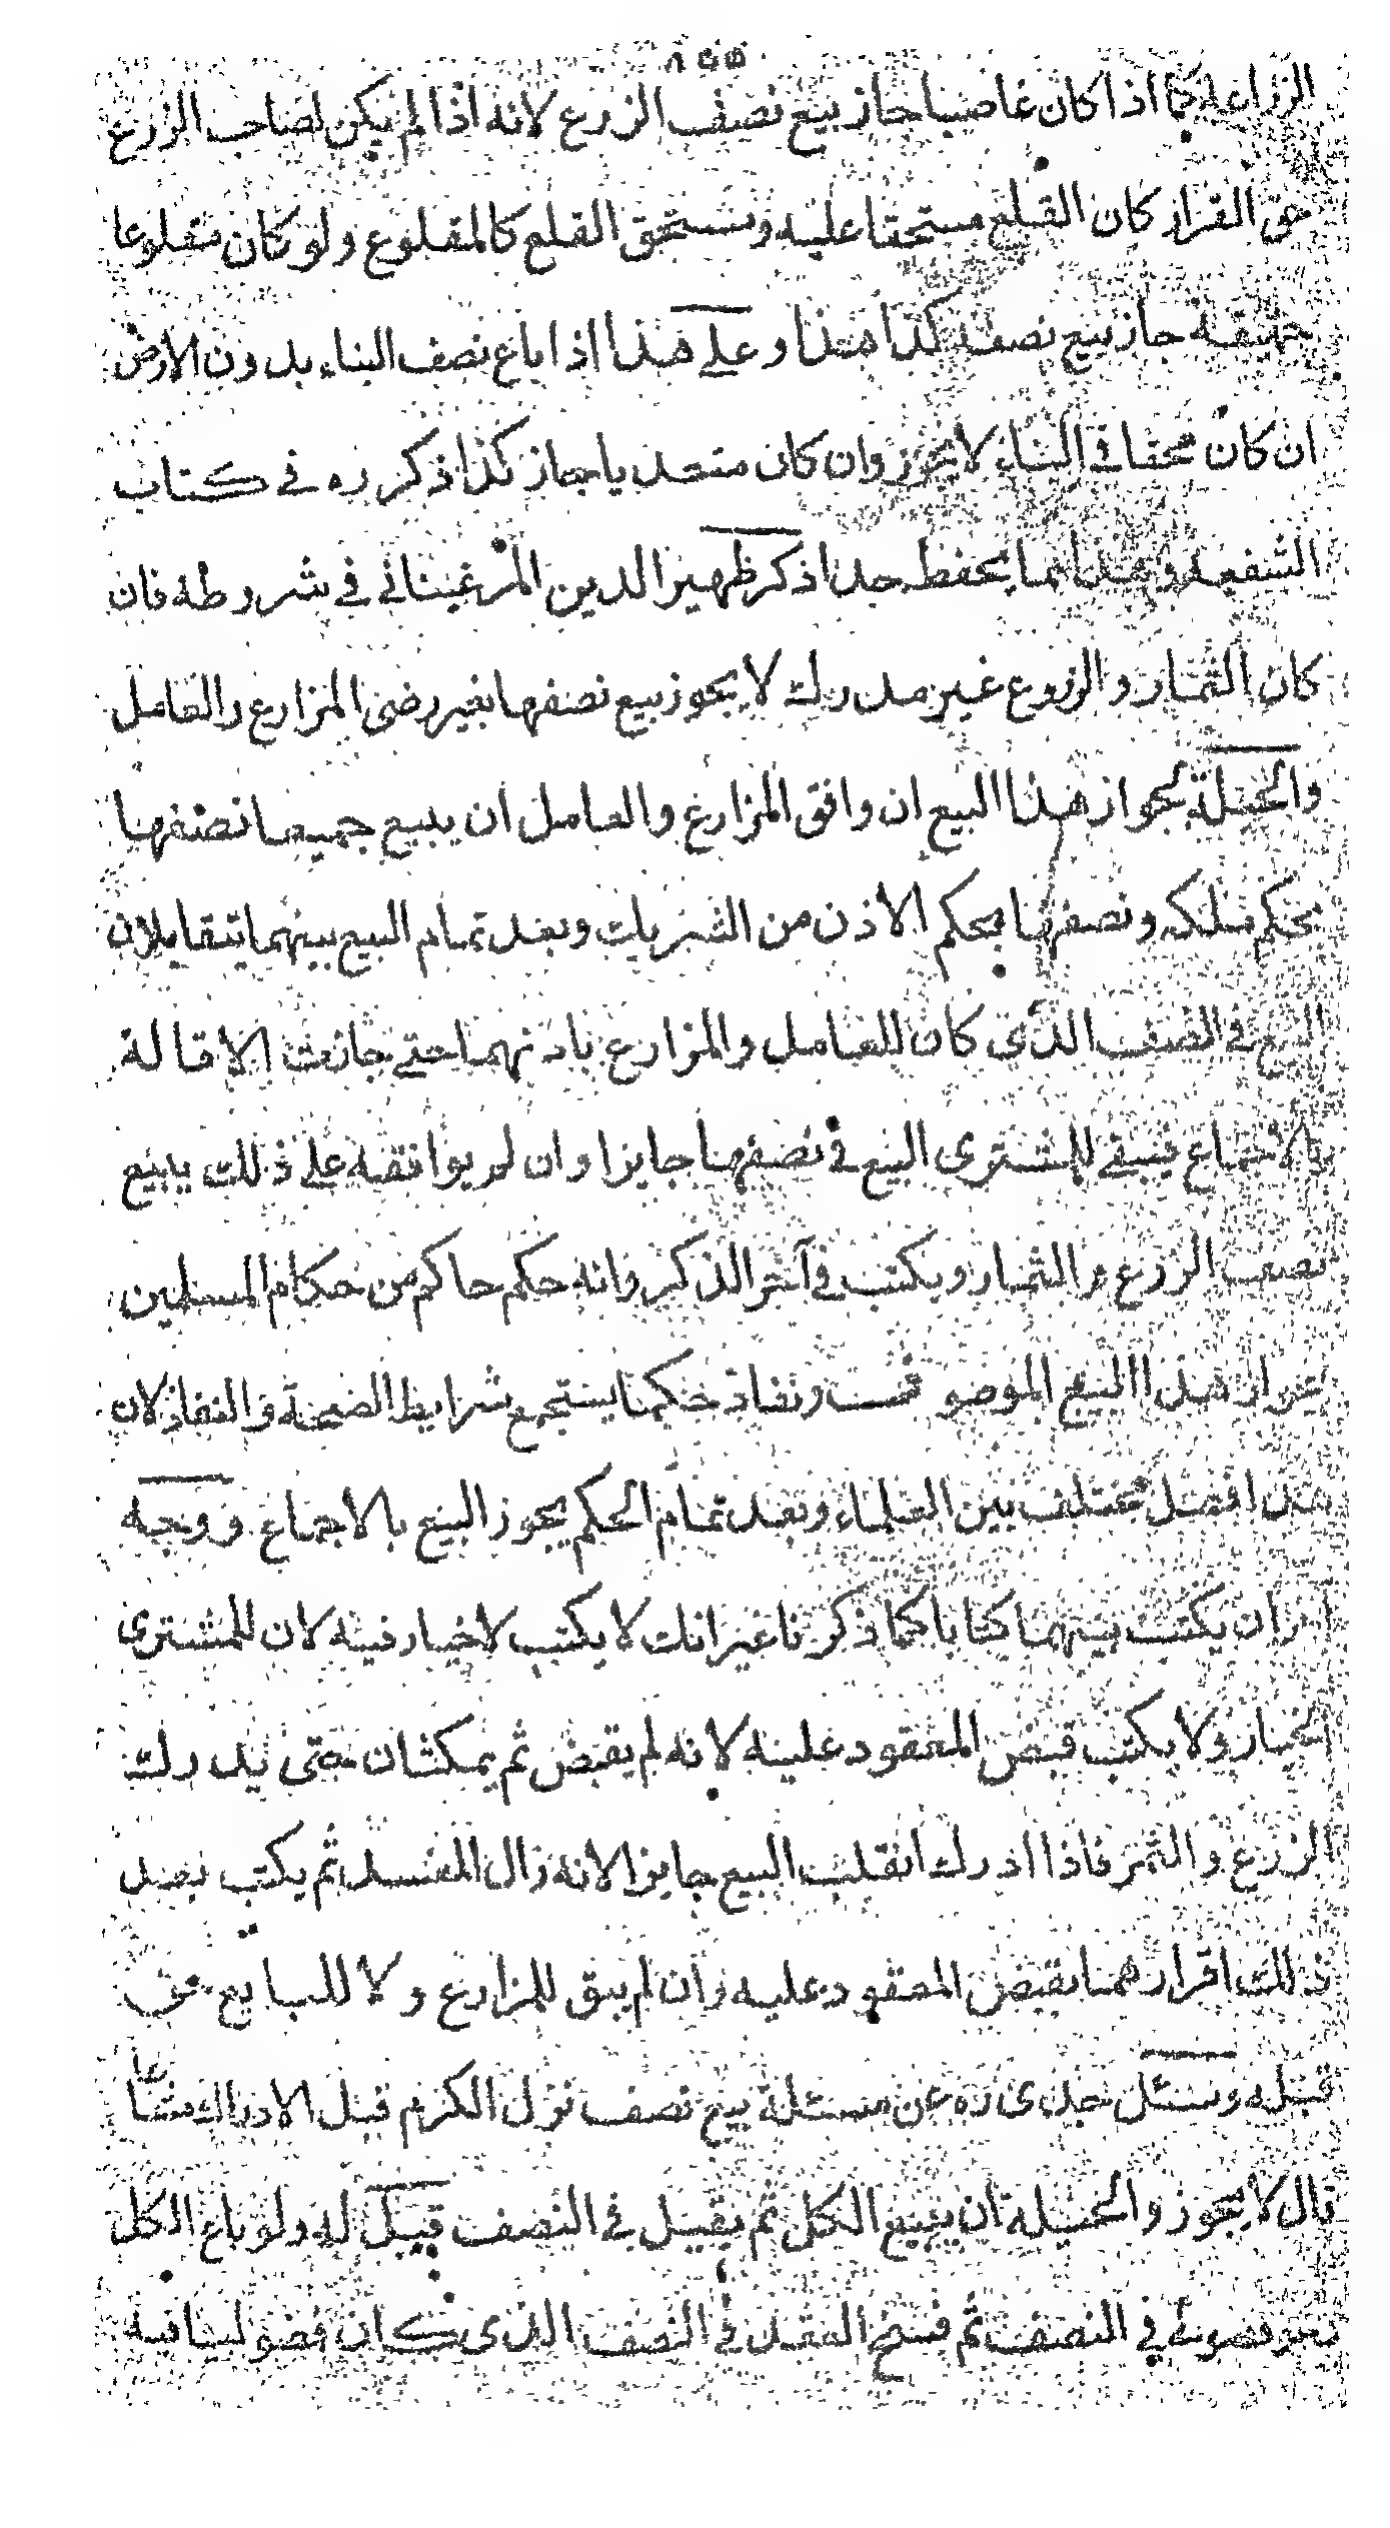 الزراعة كما اذا كان غاصبا جاز بيع نصف الزرع لانه اذا لم يكن لصاحب الزرع
حق القرار كان القلع مستحقا عليه ومستحق القلع كالمقلوع ولو كان مقلوعا
حقيقة جاز بيع نصفه كذا هذا وعلى هذا اذا باع نصف البناء بدون الارض
ان كان محقا في البناء لا يجوز وان كان متعديا جاز كذا ذكره في كتاب
الشفعة وهذا مما يحفظ جدا ذكر ظهير الدين المرغيناني في شروطه فان
كان الثمار والزروع غير مدرك لا يجوز بيع نصفها بغير رضى المزارع والعامل
والحيلة لجواز هذا البيع ان وافق المزارع والعامل ان يبيع جميعا نصفها
بحكم ملكه ونصفها بحكم الاذن من الشريك وبعد تمام البيع بينهما يتقايلان
البيع في النصف الذي كان للعامل والمزارع باذنهما حتى جازت الاقالة
بالاجماع فيبقى للمشتري البيع في نصفها جايزا وان لم يوافقه على ذلك يبيع
نصف الزرع والثمار ويكتب في آخر الذكر وانه حكم حاكم من حكام المسلمين
بجواز هذا البيع الموضو ونفاذ حكما يستجمع شرايط الصحة والنفاذ لان
هذا فصل مختلف بين العلماء وبعد تمام الحكم يجوز البيع بالاجماع ووجه
ان يكتب بينهما كتابا كما ذكرنا غير انك لا يكتب لا خيار فيه لان للمشتري
الخيار ولا يكتب قبض المعقود عليه لانه لم يقبض ثم يمكثان حتى يدرك
الزرع والثمر فاذا ادرك انقلب البيع جايزا لانه زال المفسد ثم يكتب بعد
ذلك اقرارهما بقبض المعقود عليه وان لم يبق للمزارع ولا للبايع حق
قبله وسئل جدي ره عن مسئلة بيع نصف نزل الكرم قبل الادراك مشاعا
قال لا يجوز والحيلة ان يبيع الكل ثم يقيل في النصف قيل له ولو باع الكل
وهو فضولي في النصف ثم فسخ العقد في النصف الذي كان فضوليا فيه